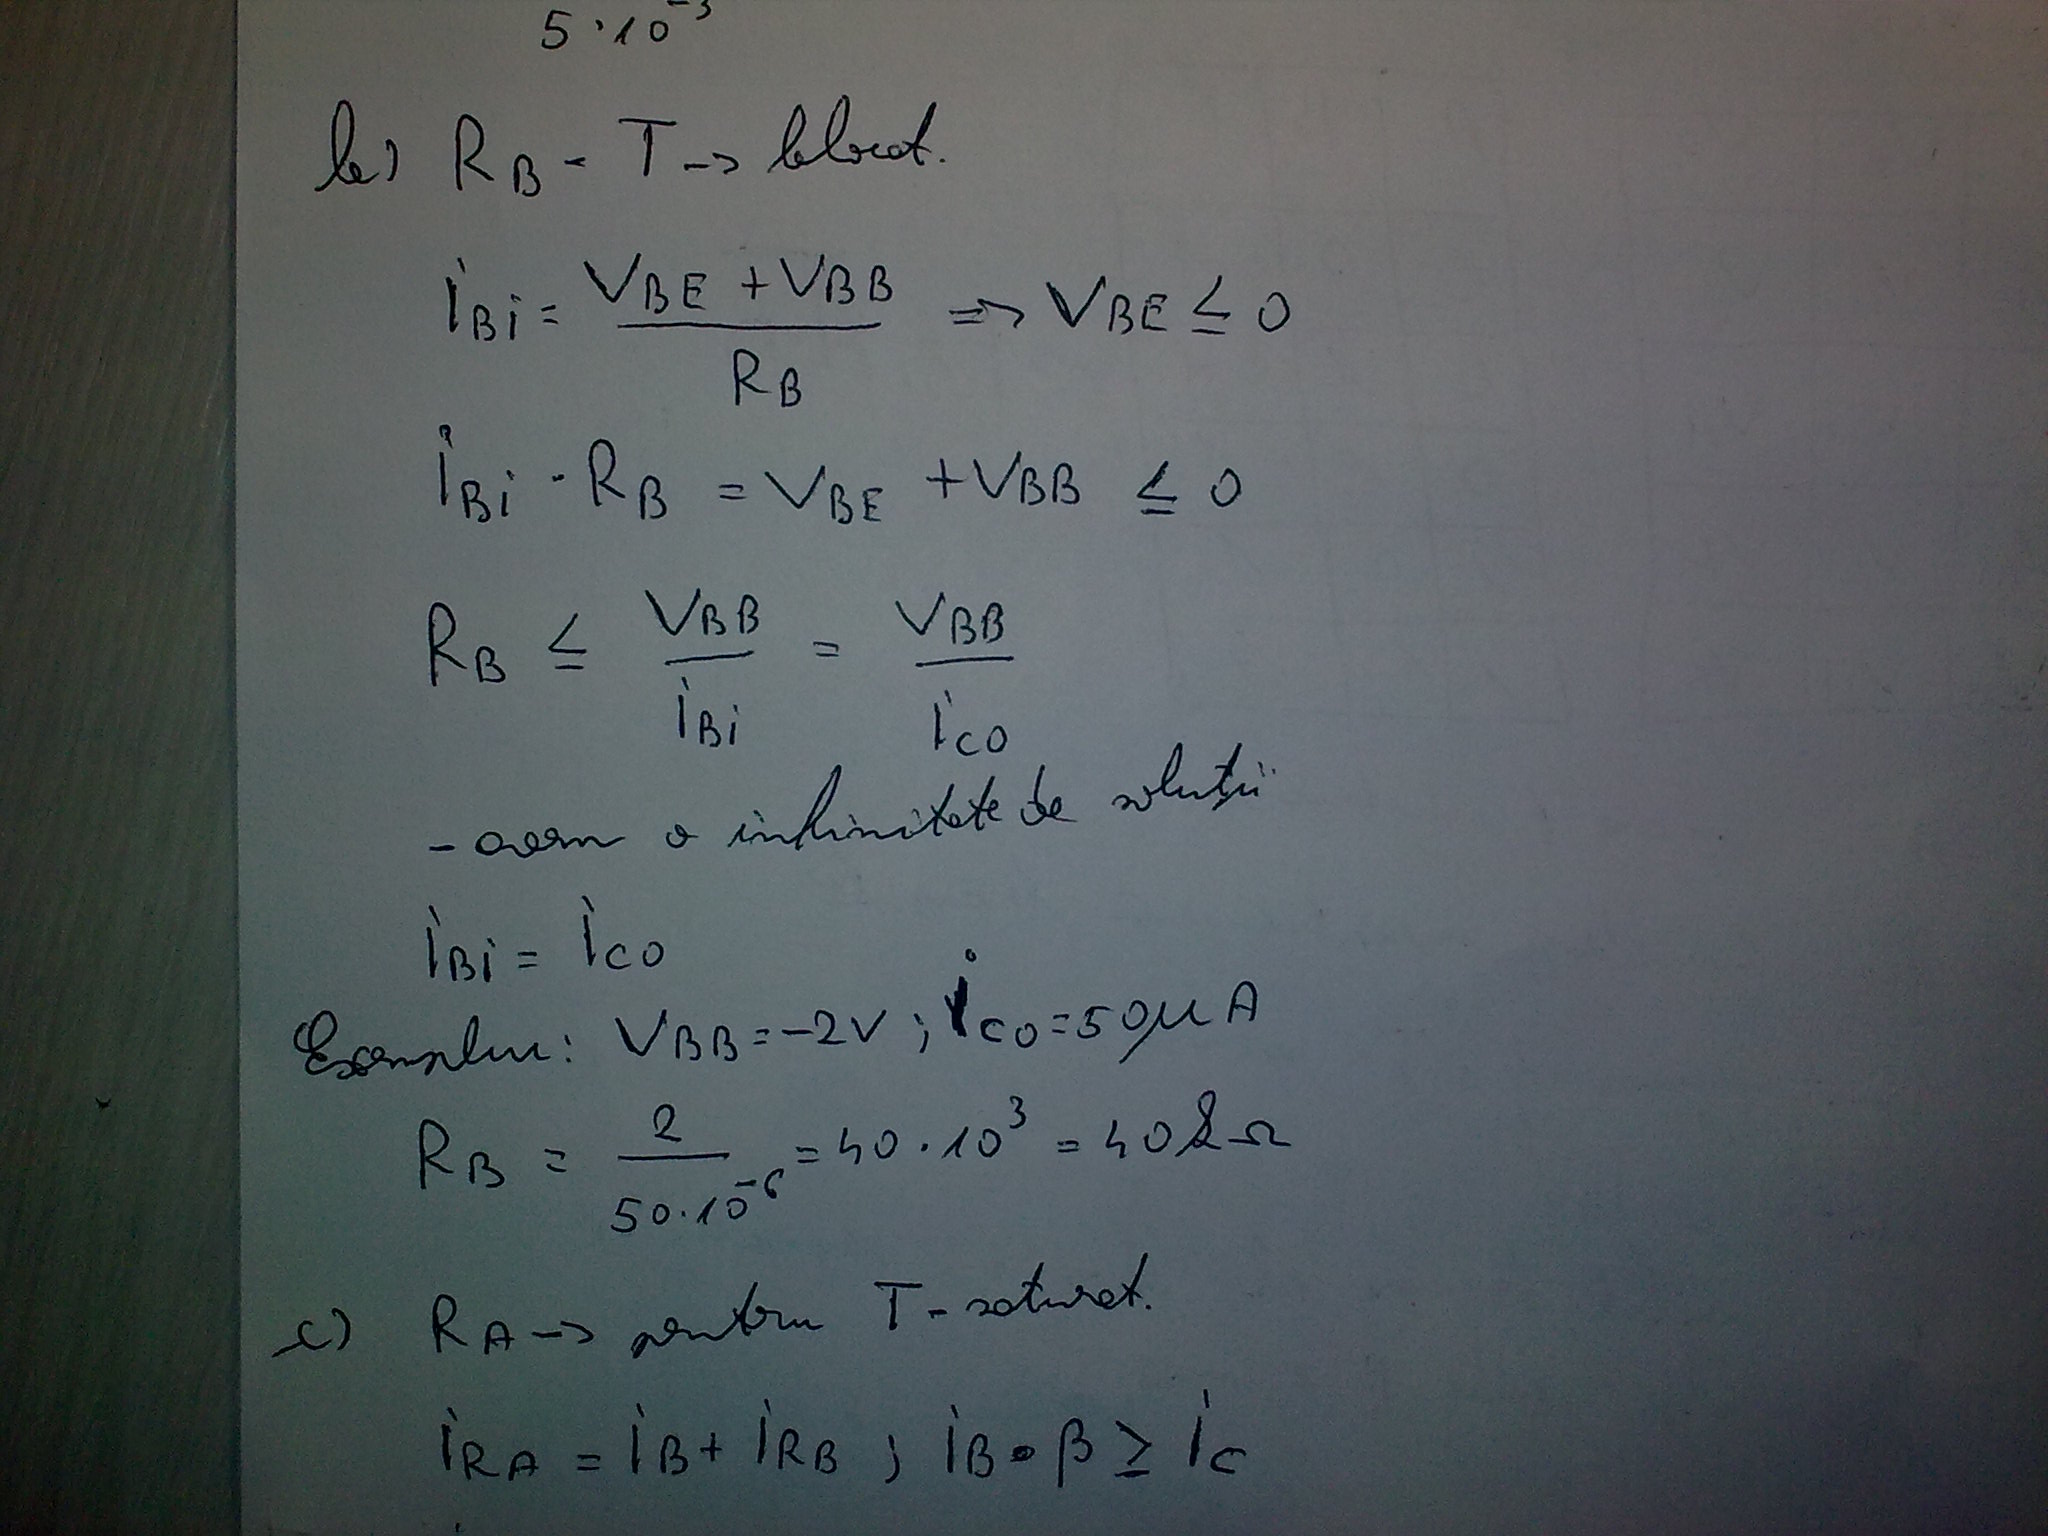 5·10⁻³
b) R_B - T → blocat.
i_Bi = (V_BE + V_BB) / R_B => V_BE ≤ 0
i_Bi · R_B = V_BE + V_BB ≤ 0
R_B ≤ V_BB / i_Bi = V_BB / i_CO
- avem o infinitate de soluții
i_Bi = i_CO
Exemplu: V_BB = -2V ; i_CO = 50 μA
R_B = 2 / (50·10⁻⁶) = 40·10³ = 40 kΩ
c) R_A → pentru T - saturat.
i_RA = i_B + i_RB ; i_B · β ≥ i_C